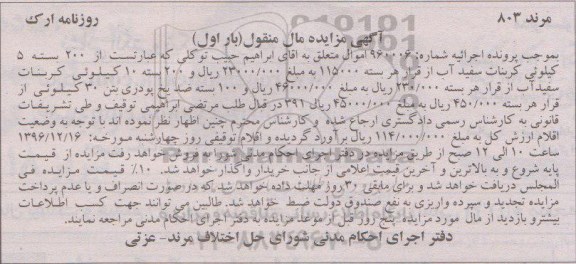 مرند ۸۰۳
روزنامه ارک
آگهی مزایده مال منقول(بار اول)
بموجب پرونده اجرائیه شماره: ۹۶۰۰۰۶ اموال متعلق به اقای ابراهیم حبیب توکلی که عبارتست از ۲۰۰ بسته ۵
کیلوئی کربنات سفید آب از قرار هر بسته ۱۱۵۰۰۰ به مبلغ ۲۳۰۰۰۰۰۰ ریال و ۲۰۰ بسته ۱۰ کیلوئی کربنات
سفید آب از قرار هر بسته ۲۳۰/۰۰۰ ریال به مبلغ ۴۶۰۰۰/۰۰۰ ریال و ۱۰۰ بسته ضد یخ پودری بتن ۳۰ کیلوئی از
قرار هر بسته ۴۵۰/۰۰۰ ریال به مبلغ ۴۵۰۰۰/۰۰۰ ریالی ۳۹۱ در قبال طلب مرتضی ابراهیمی توقیف و طی تشریفات
قانونی به کارشناس رسمی دادگستری ارجاع شده و کارشناس محترم چنین اظهار نظر نموده اند با توجه به وضعیت
اقلام ارزش کل به مبلغ ۱۱۴/۰۰۰/۰۰۰ ریال برآورد گردیده و اقلام توقیفی روز چهارشنبه مورخه: ۱۳۹۶/۱۲/۱۶
ساعت ۱۰ الی ۱۲ صبح از طریق مزایده در دفتر اجرای احکام مدنی شورا به فروش خواهد رفت مزایده از قیمت
پایه شروع و به بالاترین و آخرین قیمت اعلامی از جانب خریدار واگذار خواهد شد. ۱۰٪ قیمت مزایده فی
المجلس دریافت خواهد شد و برای مابقی ۳۰ روز مهلت داده خواهد شد که در صورت انصراف و یا عدم پرداخت
مزایده تجدید و سپرده واریزی به نفع صندوق دولت ضبط خواهد شد. طالبین می توانند جهت کسب اطلاعات
بیشتر و بازدید از مال مورد مزایده پنج روز قبل از موعد مزایده به دفتر اجرای احکام مدنی مراجعه نمایند.
دفتر اجرای احکام مدنی شورای حل اختلاف مرند- عزتی